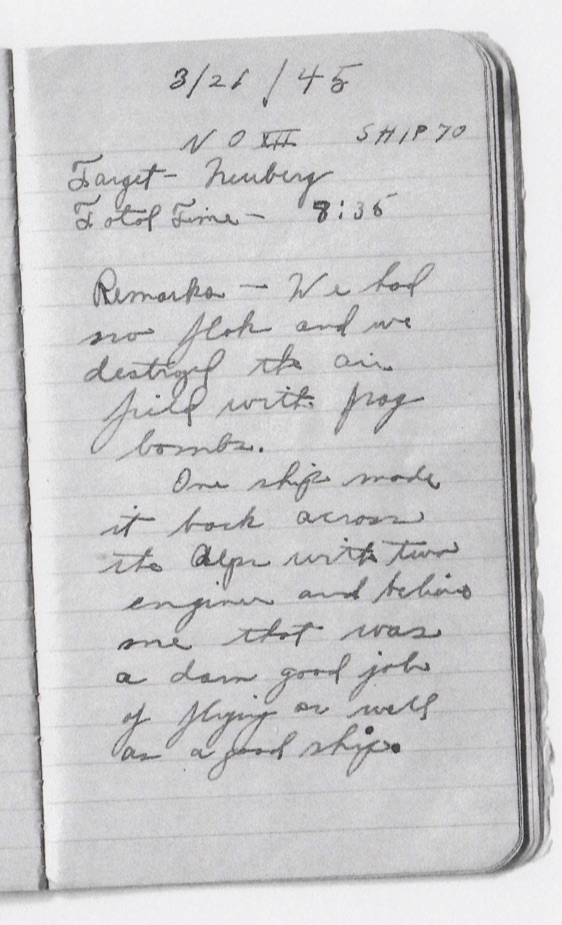 3/21/45
NO XII SHIP 70
Target - Neuberg
Total Time - 8:35
Remarks - We had
no flak and we
destroyed the air
field with frag
bombs.
One ship made
it back across
the Alps with two
engines and believe
me that was
a darn good job
of flying as well
as a good ship.